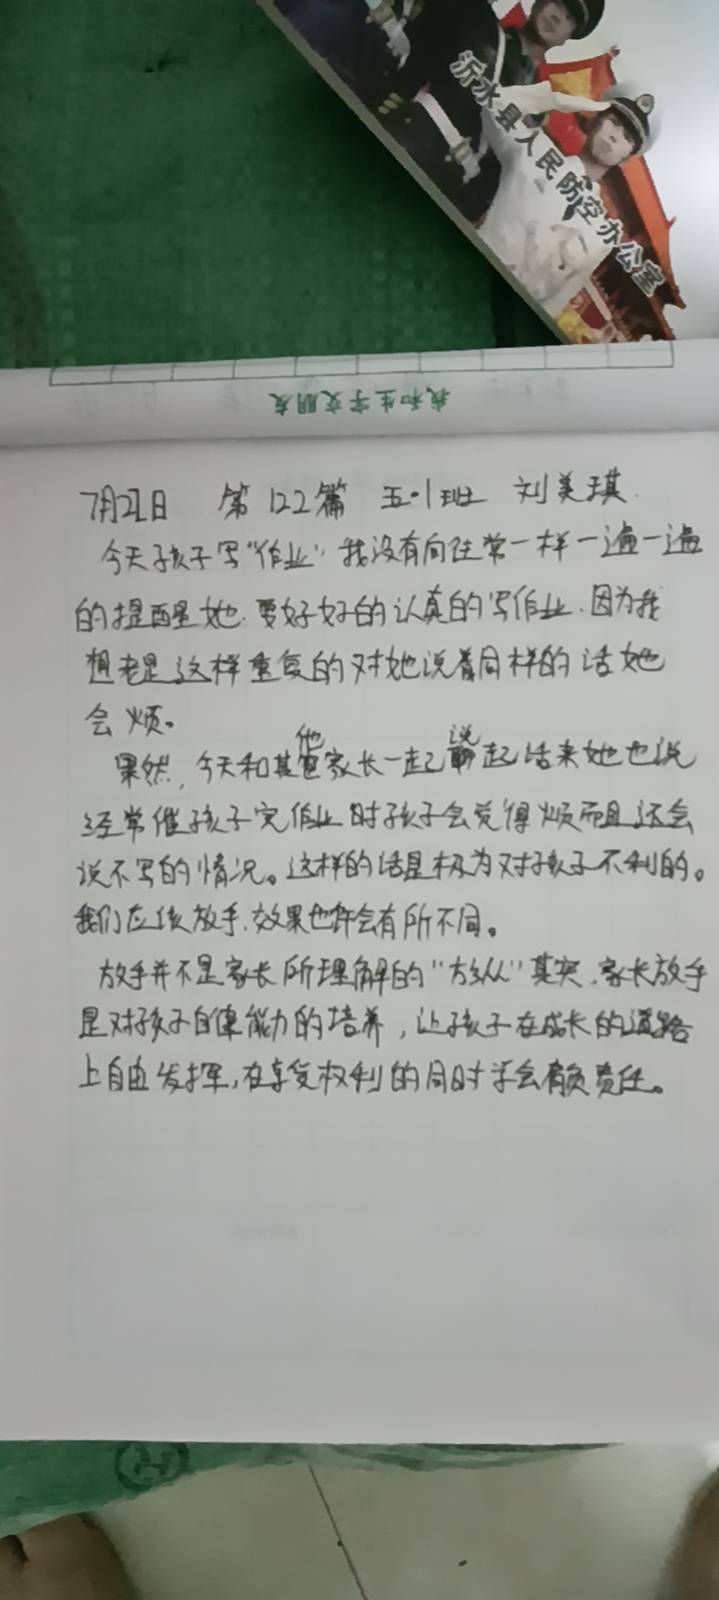 沂水县人民防空办公室
我和生字交朋友
7月22日 第122篇 五·1班 刘美琪.
今天孩子写"作业",我没有向往常一样一遍一遍
的提醒她.要好好的认真的写作业.因为我
想老是这样重复的对她说着同样的话她
会烦。
果然,今天和其他家长一起说起话来她也说
经常催孩子完作业时孩子会觉得烦而且还会
说不写的情况。这样的话是极为对孩子不利的。
我们应该放手.效果也许会有所不同。
放手并不是家长所理解的"放纵"其实.家长放手
是对孩子自律能力的培养,让孩子在成长的道路
上自由发挥,在享受权利的同时学会肩负责任。